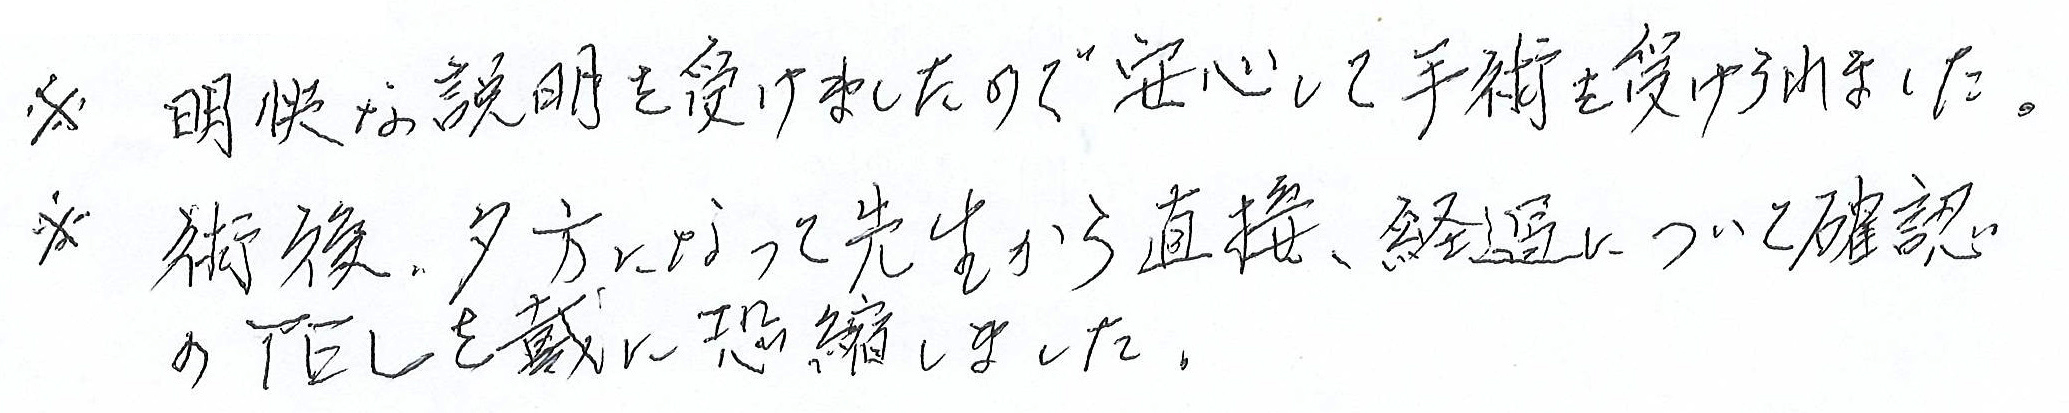 ※ 明快な説明を受けましたので安心して手術を受けられました。
※ 術後、夕方になって先生から直接、経過について確認
のTELを戴に恐縮しました。